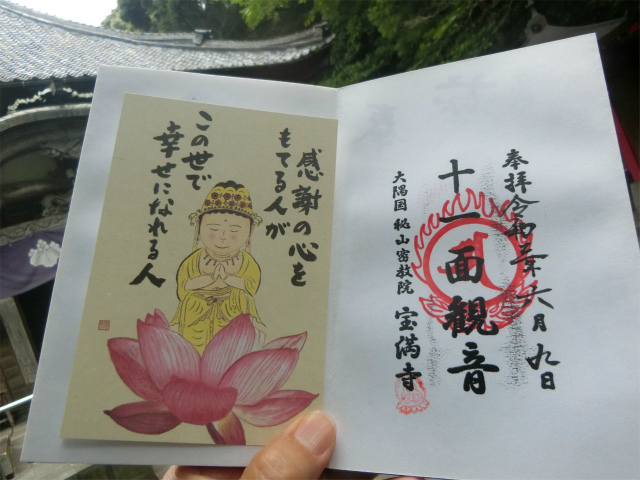 感謝の心を
もてる人が
この世で
幸せになれる人
奉拝 令和二年六月九日
十一面観音
大隅国 秘山密教院 宝満寺